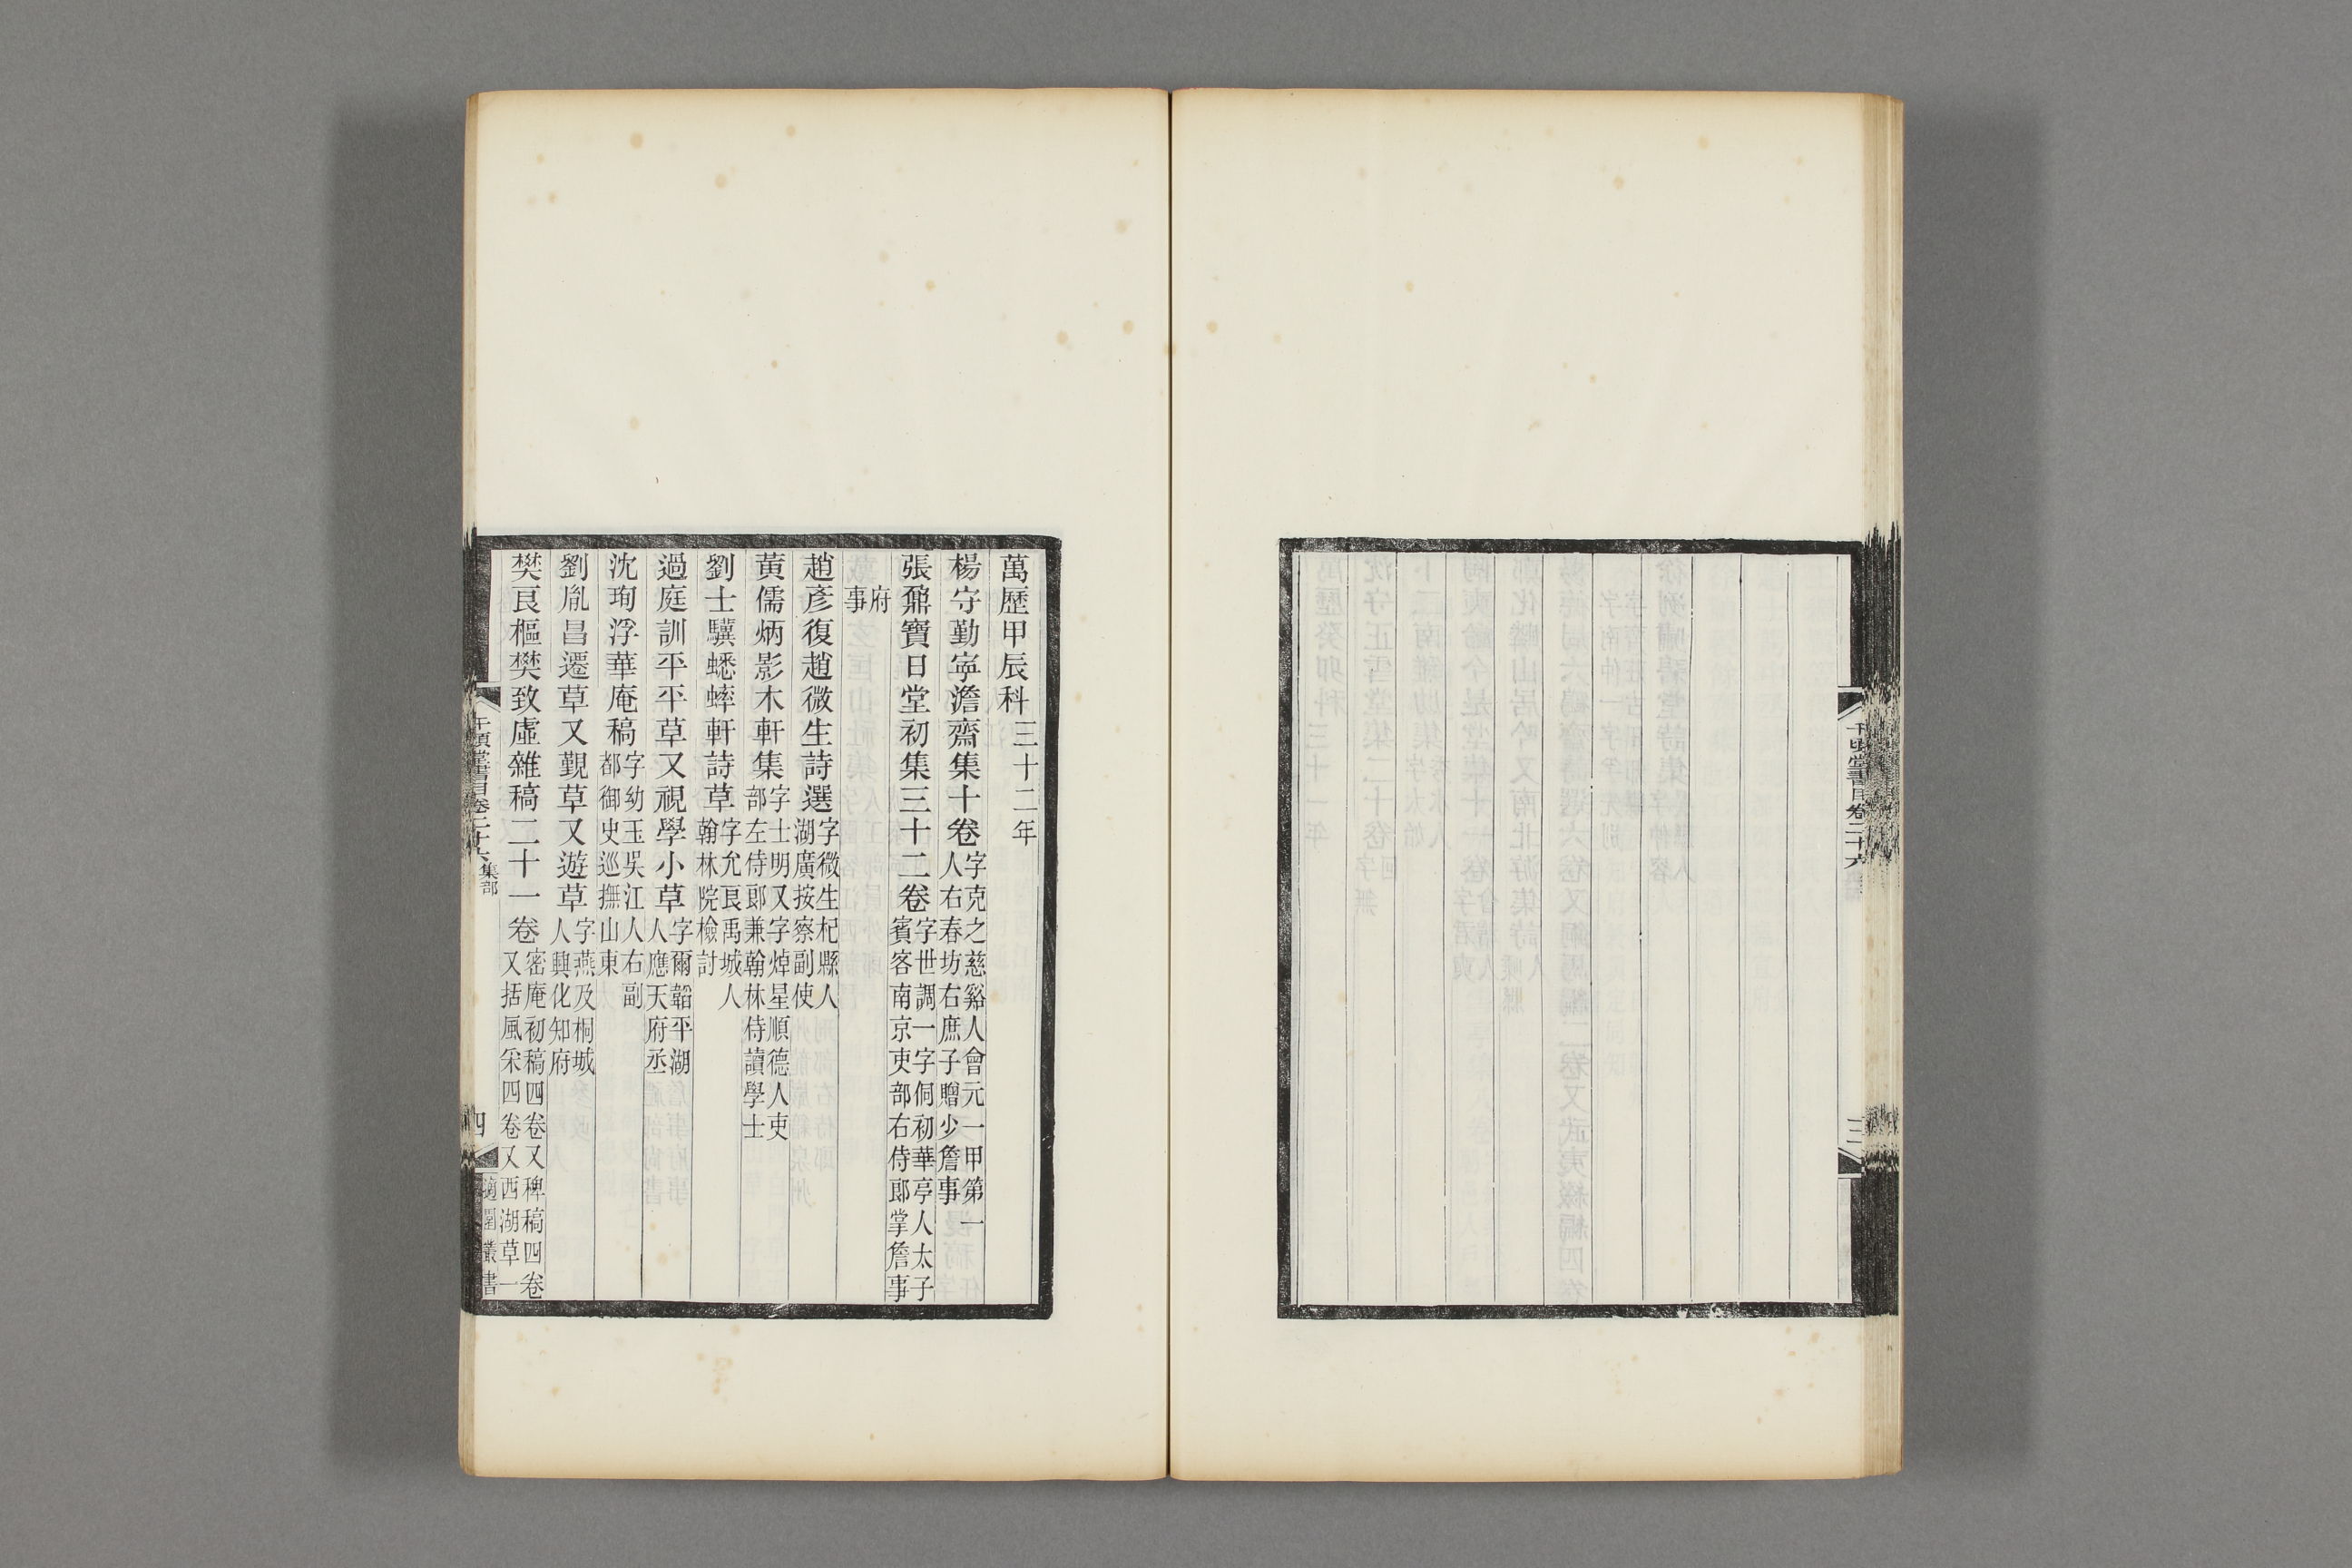 千頃堂書目卷二十六
三
萬歷甲辰科三十二年
楊守勤寧澹齋集十卷字克之慈谿人會元一甲第一人右春坊右庶子贈少詹事
張鼐寶日堂初集三十二卷字世調一字侗初華亭人太子賓客南京吏部右侍郎掌詹事
府事
趙彥復趙微生詩選字微生杞縣人湖廣按察副使
黃儒炳影木軒集字士明又字焯星順德人吏部左侍郎兼翰林侍讀學士
劉士驥蟋蟀軒詩草字允良禹城人翰林院檢討
過庭訓平平草又視學小草字爾韜平湖人應天府丞
沈珣浮華庵稿字幼玉吳江人右副都御史巡撫山東
劉胤昌遷草又覲草又遊草字燕及桐城人興化知府
樊良樞樊致虛雜稿二十一卷密庵初稿四卷又稗稿四卷又括風采四卷又西湖草一
千頃堂書目卷二十六集部
四
適園叢書